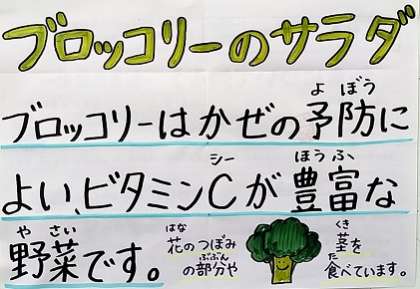 ブロッコリーのサラダ
ブロッコリーはかぜの予防に
よぼう
よい、ビタミンCが豊富な
シー
ほうふ
野菜です。
やさい
花のつぼみ
はな
の部分や
ぶぶん
茎を
くき
食べています。
た